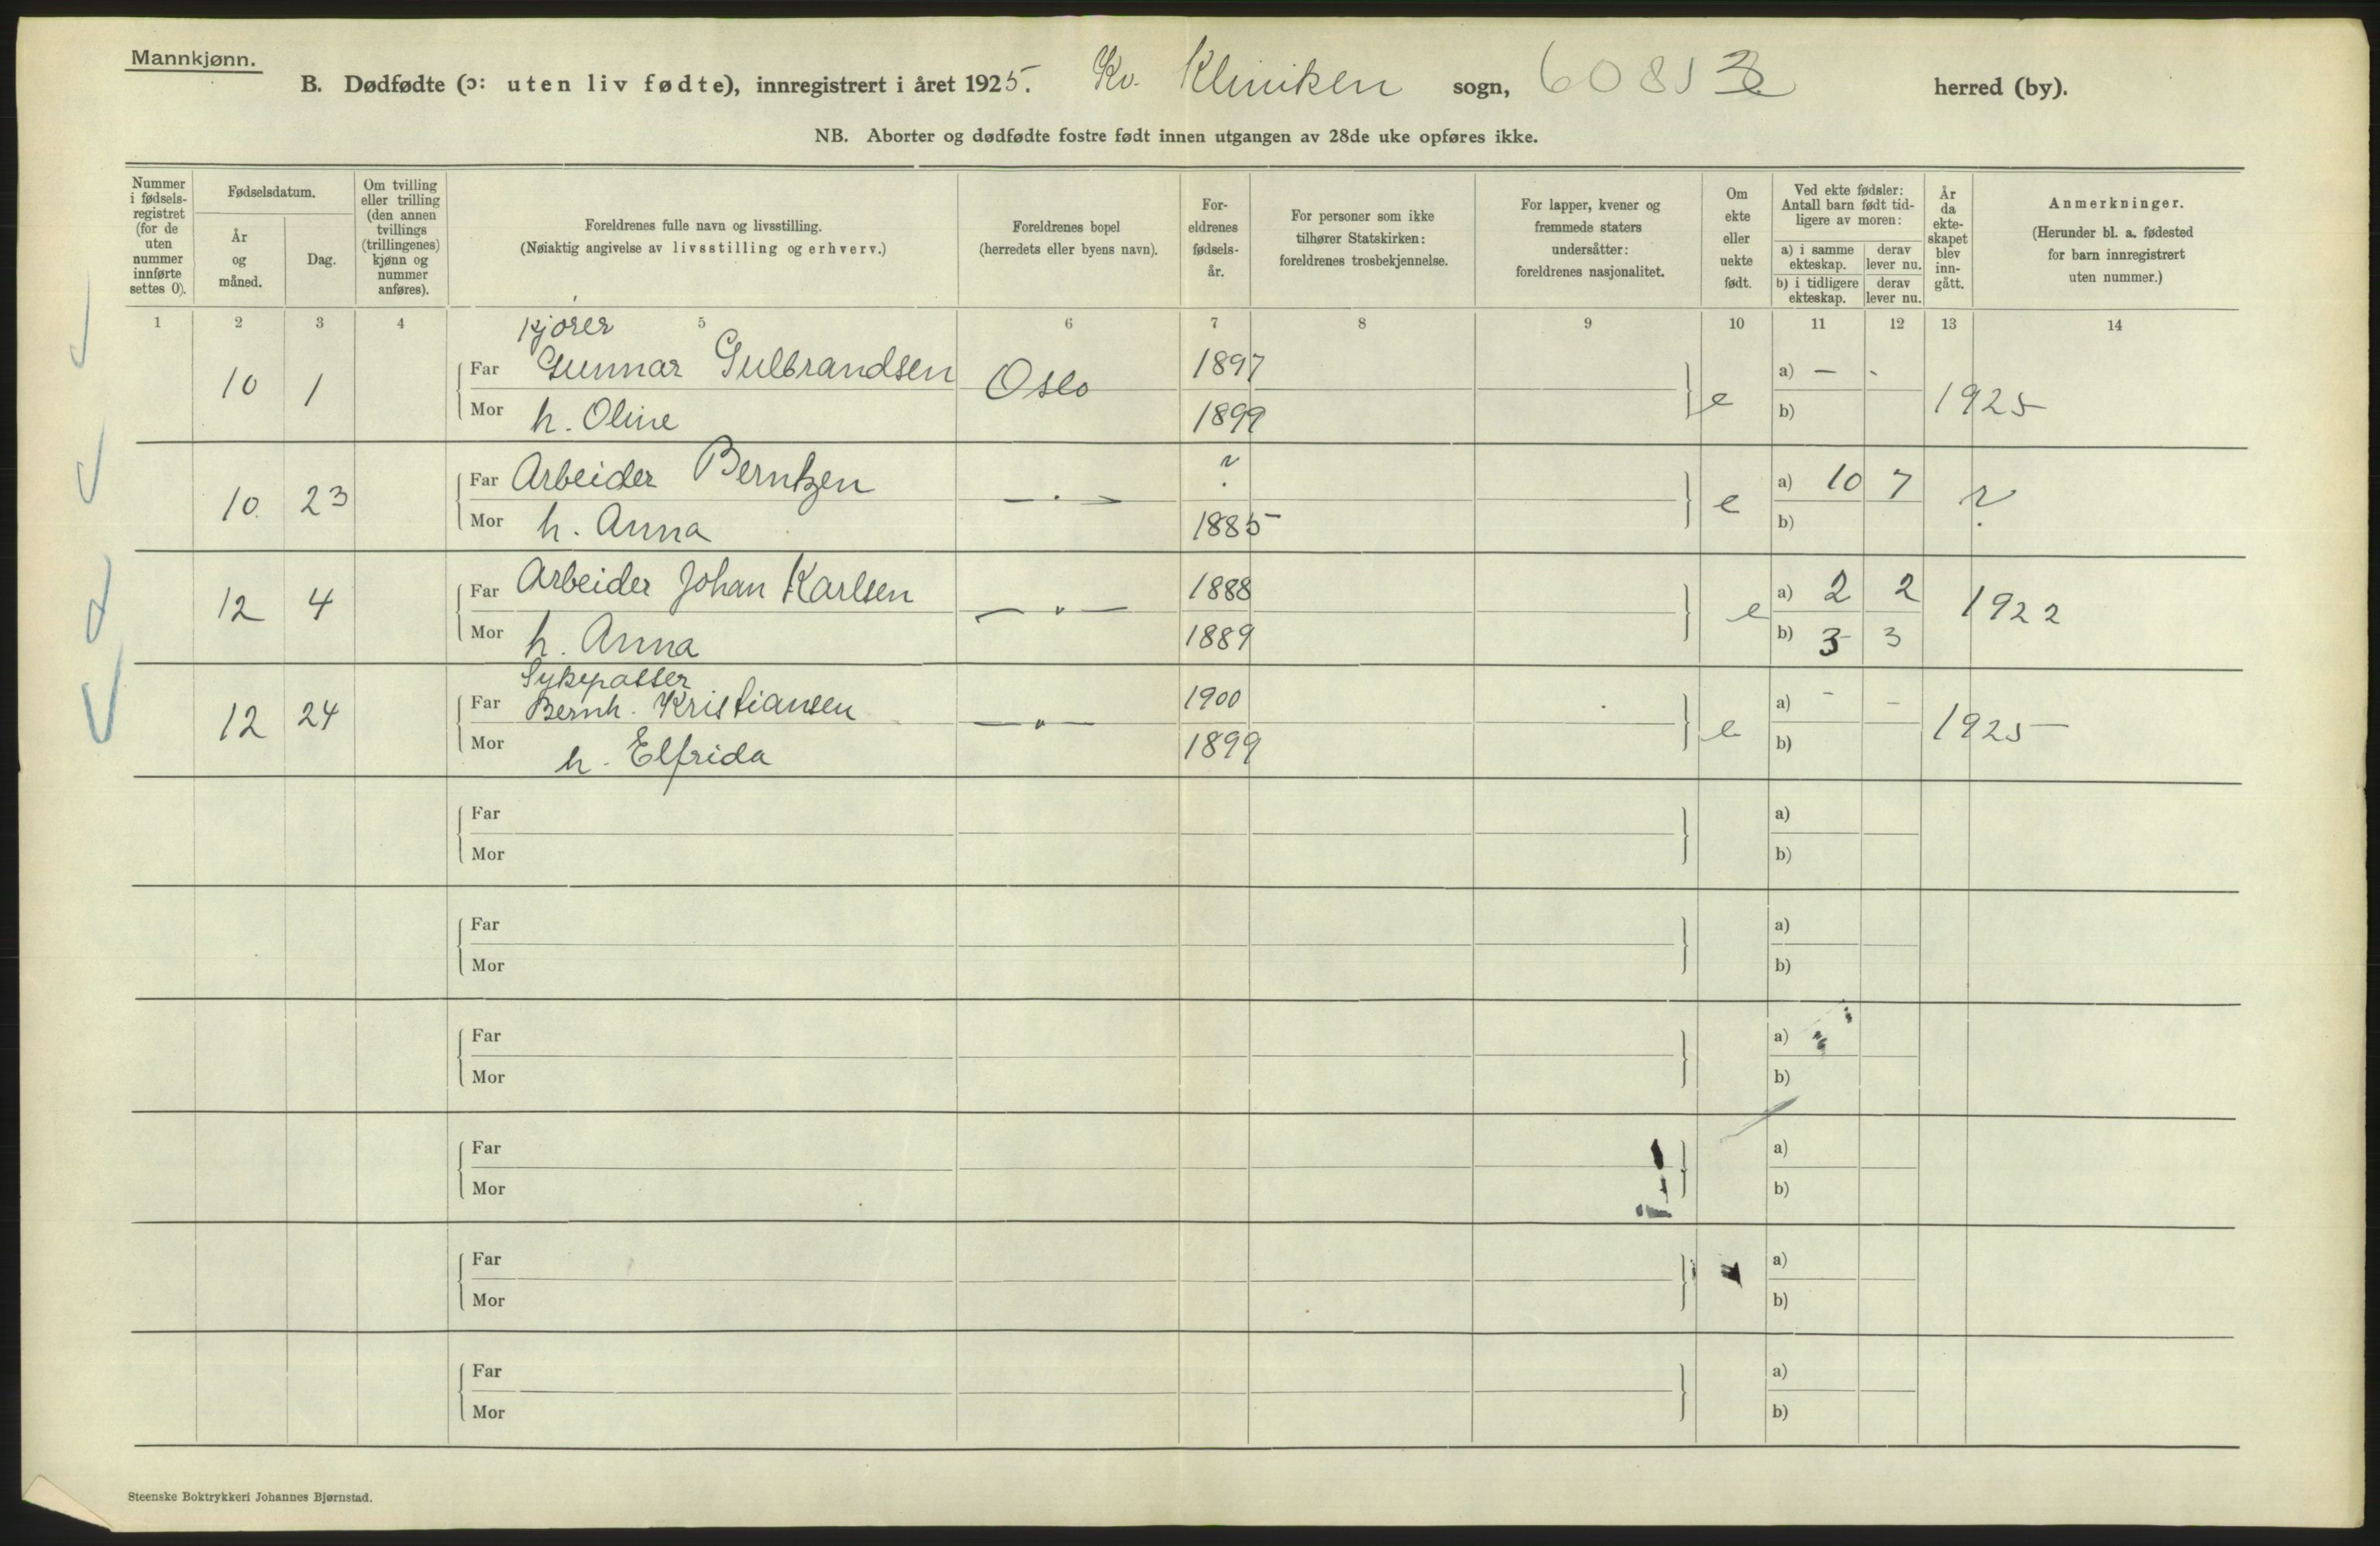 Mannkjønn.
B. Dødfødte (ɔ: uten liv fødte), innregistrert i året 1925. Kv. Kliniken sogn, herred (by).
NB. Aborter og dødfødte fostre født innen utgangen av 28de uke opføres ikke.
Nummer i fødsels-registret (for de uten nummer innførte settes 0).
Fødselsdatum.
År og måned.
Dag.
Om tvilling eller trilling (den annen tvillings (trillingenes) kjønn og nummer anføres).
Foreldrenes fulle navn og livsstilling.
(Nøiaktig angivelse av livsstilling og erhverv.)
Foreldrenes bopel
(herredets eller byens navn).
For-eldrenes fødsels-år.
For personer som ikke tilhører Statskirken: foreldrenes trosbekjennelse.
For lapper, kvener og fremmede staters undersåtter: foreldrenes nasjonalitet.
Om ekte eller uekte født.
Ved ekte fødsler: Antall barn født tid-ligere av moren:
a) i samme ekteskap.
derav lever nu.
b) i tidligere ekteskap.
derav lever nu.
År da ekte-skapet blev inn-gått.
Anmerkninger.
(Herunder bl. a. fødested for barn innregistrert uten nummer.)
1 2 3 4 5 6 7 8 9 10 11 12 13 14
Kjører
10 1 Far Gunnar Gulbrandsen Oslo 1897 e a) - - 1925
Mor h. Oline 1899 b)
10 23 Far Arbeider Berntzen — " — ? e a) 10 7 ?
Mor h. Anna 1885 b)
12 4 Far Arbeider Johan Karlsen — " — 1888 e a) 2 2 1922
Mor h. Anna 1889 b) 3 3
Sykepasser
12 24 Far Bernh. Kristiansen — " — 1900 e a) - - 1925
Mor h. Elfrida 1899 b)
Far a)
Mor b)
Far a)
Mor b)
Far a)
Mor b)
Far a)
Mor b)
Far a)
Mor b)
Far a)
Mor b)
Steenske Boktrykkeri Johannes Bjørnstad.